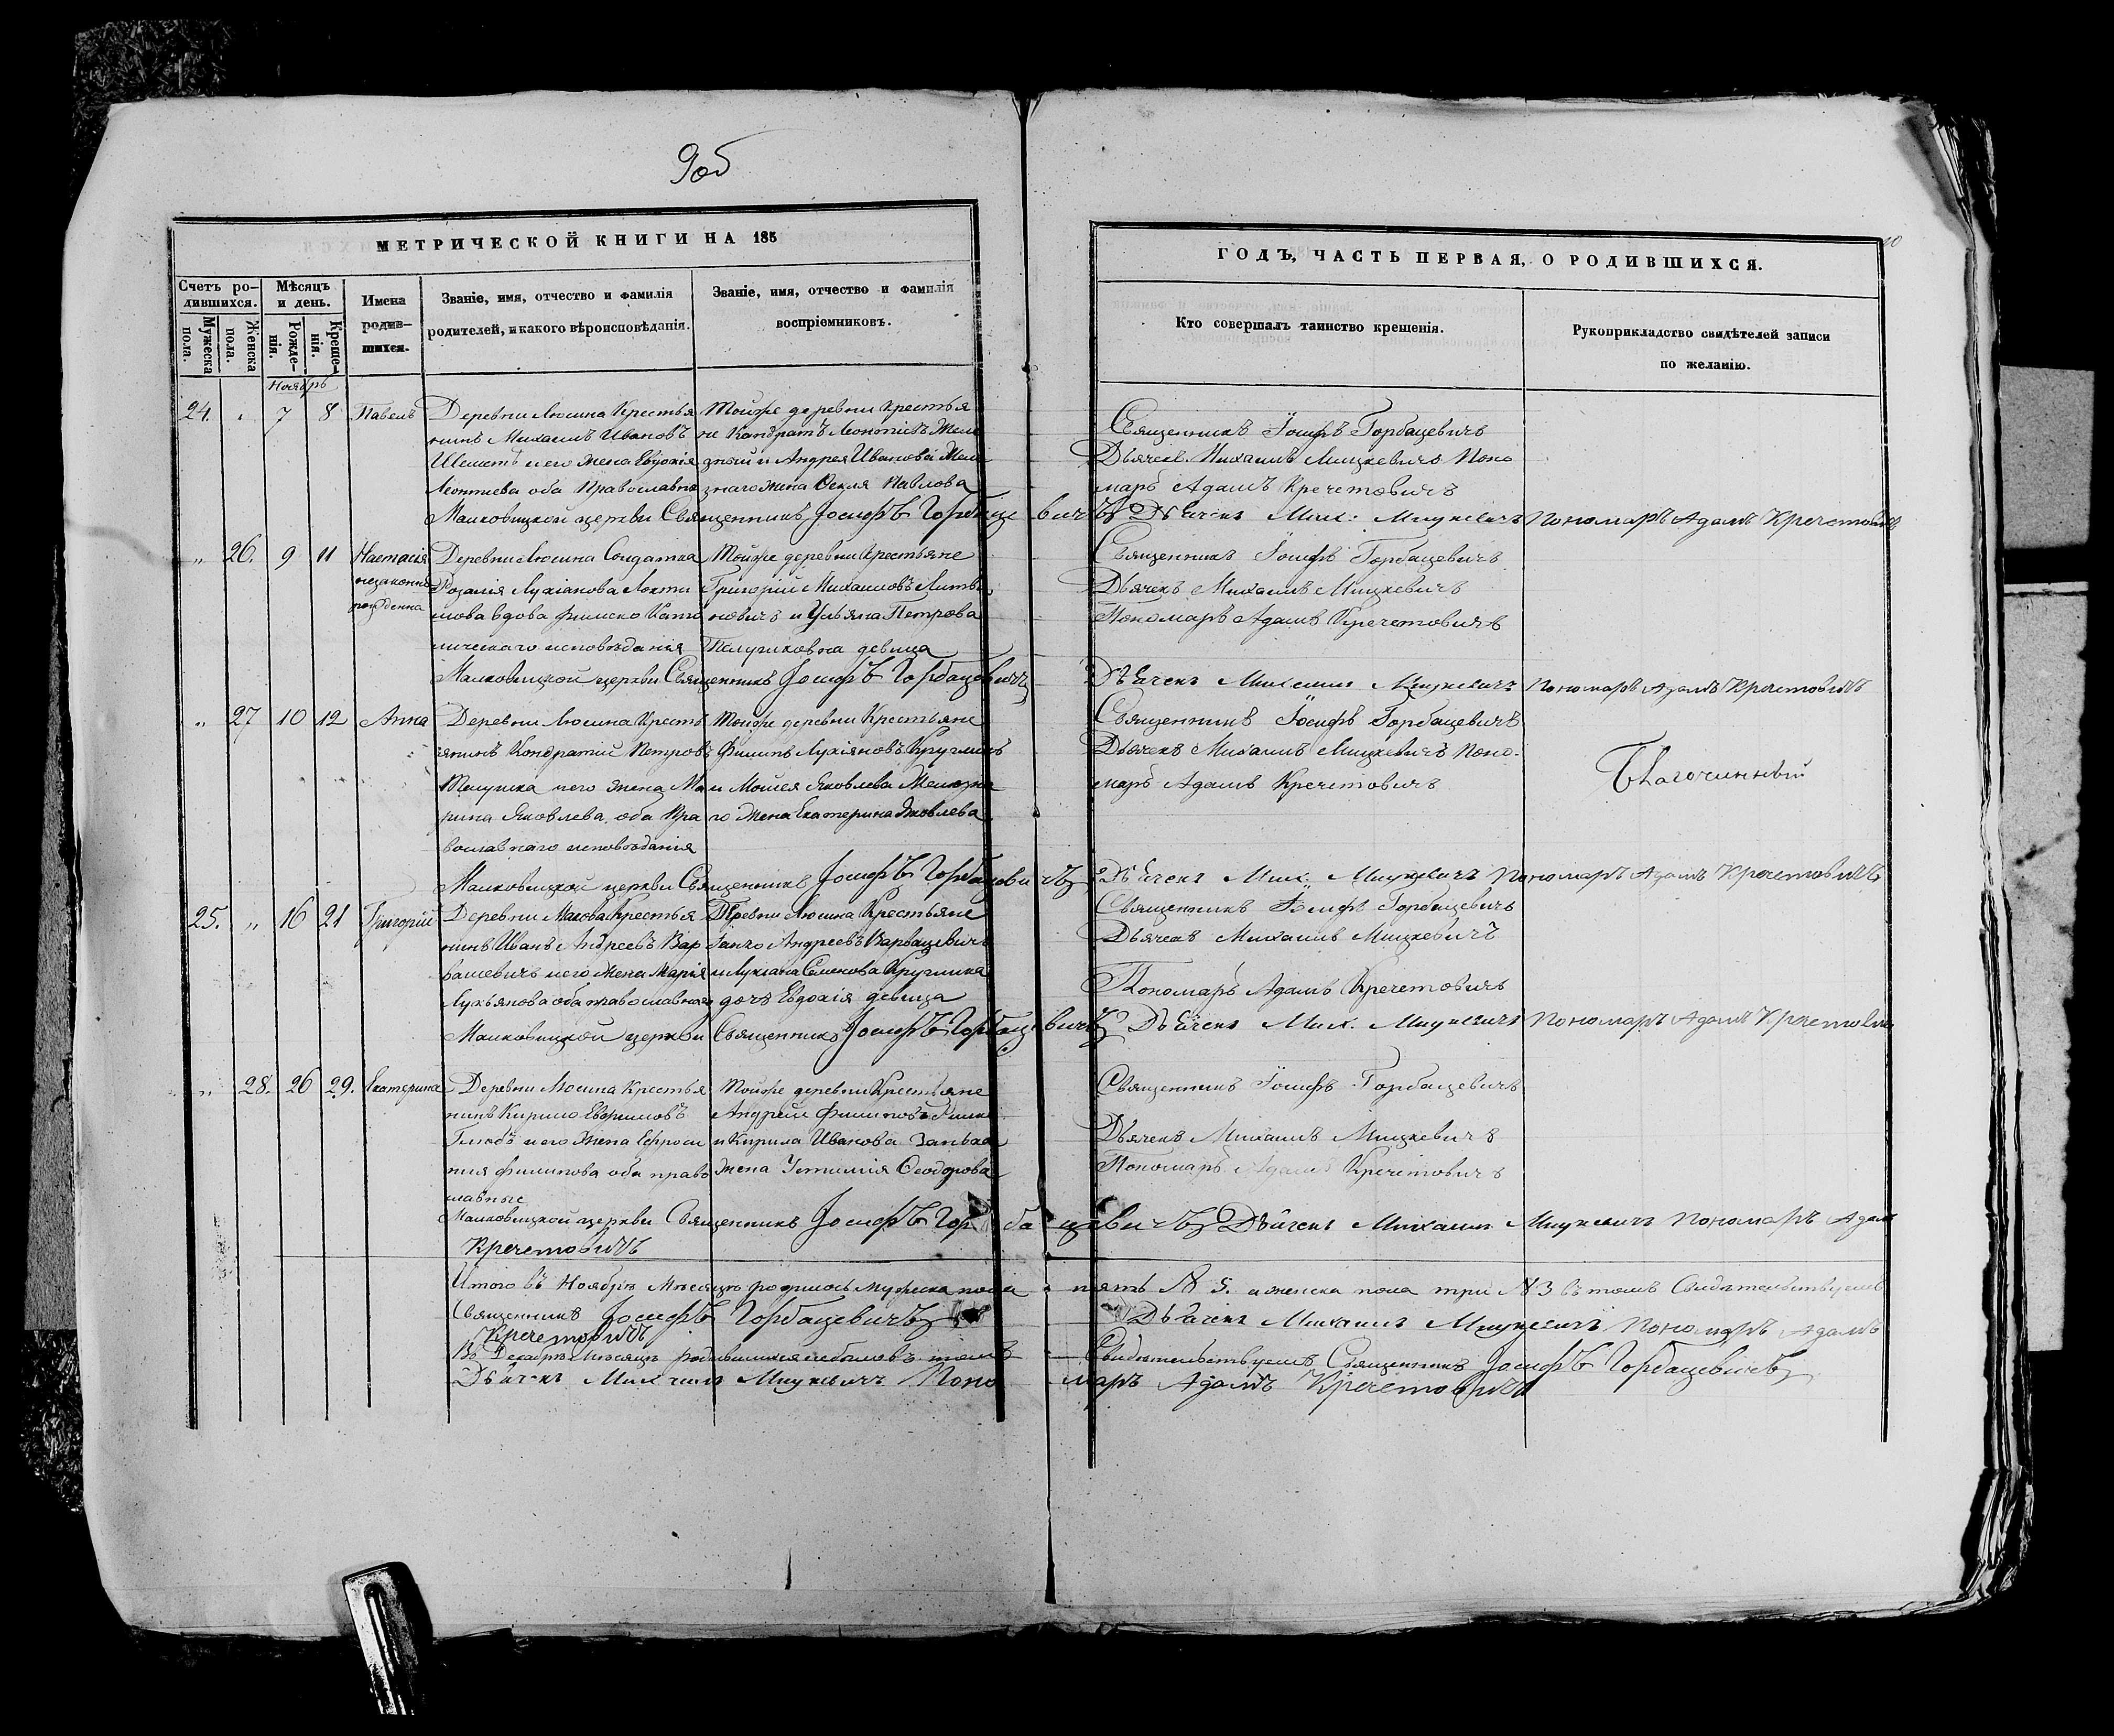 9об
10
МЕТРИЧЕСКОЙ КНИГИ НА 185
ГОДЪ, ЧАСТЬ ПЕРВАЯ, О РОДИВШИХСЯ.
Счетъ ро-
дившихся.
Мужеска
пола.
Женска
пола.
Мѣсяцъ
и день.
Рожде-
нія.
Креще-
нія.
Имена
родив-
шихся.
Званіе, имя, отчество и фамилія
родителей, и какого вѣроисповѣданія.
Званіе, имя, отчество и фамилія
воспріемниковъ.
Кто совершалъ таинство крещенія.
Рукоприкладство свидѣтелей записи
по желанію.
Ноябрь
24. " 7 8 Павелъ
Деревни Люсина Крестья
нинъ Михаилъ Ивановъ
и его жена Евдокія
Леонтиева оба Православны
Тойже деревни Крестья
не Кондратъ Леонтіевъ Желе
зный и Андрея Иванова Желе
знаго жена Ѳекля Павлова
Священникъ Іосифъ Горбацевичъ
Дьячекъ Михаилъ Мицкевичъ Поно
марь Адамъ Кречетовичъ
Малковицкой церкви Священникъ Іосифъ Горбацевичъ Дьячекъ Мих. Мицкевичъ Пономарь Адамъ Кречетовичъ
" 26. 9 11 Настасія
незаконно
рожденна
Деревни Люсина Солдатка
Розалія Лукіанова
вдова Римско Като
лическаго исповѣданія
Тойже деревни Крестьяне
Григорій Михаиловъ Литви
новичъ и Ульяна Петрова
девица
Священникъ Іосифъ Горбацевичъ
Дьячекъ Михаилъ Мицкевичъ
Пономарь Адамъ Кречетовичъ
Малковицкой церкви Священникъ Іосифъ Горбацевичъ Дьячекъ Михаилъ Мицкевичъ Пономарь Адамъ Кречетовичъ
" 27 10 12 Анна
Деревни Люсина Кресть
янинъ Кондратій Петровъ
и его жена Ма
рина Яковлева, оба Пра
вославнаго исповѣданія
Тойже деревни Крестьяне
Филипъ Лукіановъ Кругликъ
и Мойсея Яковлева Железна
го жена Екатерина Яковлева
Священникъ Іосифъ Горбацевичъ
Дьячекъ Михаилъ Мицкевичъ Поно-
марь Адамъ Кречетовичъ
Благочинный
Малковицкой церкви Священникъ Іосифъ Горбацевичъ Дьячекъ Мих. Мицкевичъ Пономарь Адамъ Кречетовичъ
25. " 16 21 Григорій
Деревни Крестья
нинъ Иванъ Андреевъ Вар
вашевичъ и его жена Марія
Лукьянова оба православнаго
Деревни Люсина Крестьяне
Андреевъ Варвашевичъ
и Лукіана Семенова Круглика
дочь Евдокія девица
Священникъ Іосифъ Горбацевичъ
Дьячекъ Михаилъ Мицкевичъ
Пономарь Адамъ Кречетовичъ
Малковицкой церкви Священникъ Іосифъ Горбацевичъ Дьячекъ Мих. Мицкевичъ Пономарь Адамъ Кречетовичъ
" 28. 26 29. Екатерина
Деревни Люсина Крестья
нинъ Кирило Евфимовъ
и его жена Ефроси
ния Филипова оба право
славные
Тойже деревни Крестьяне
Андрей Филиповъ
и Кирила Иванова Заньха
жена Ѳеодорова
Священникъ Іосифъ Горбацевичъ
Дьячекъ Михаилъ Мицкевичъ
Пономарь Адамъ Кречетовичъ
Малковицкой церкви Священникъ Іосифъ Горбацевичъ Дьячекъ Михаилъ Мицкевичъ Пономарь Адамъ
Кречетовичъ
Итого въ Ноябрѣ Месяцѣ родилось мужеска пола пять № 5. а женска пола три № 3 въ томъ Свидѣтельствуемъ
Священникъ Іосифъ Горбацевичъ Дьячекъ Михаилъ Мицкевичъ Пономарь Адамъ
Кречетовичъ
Въ Декабрѣ Месяцѣ родившихся небыло въ томъ Свидѣтельствуемъ Священникъ Іосифъ Горбацевичъ
Дьячекъ Михаилъ Мицкевичъ Пономарь Адамъ Кречетовичъ